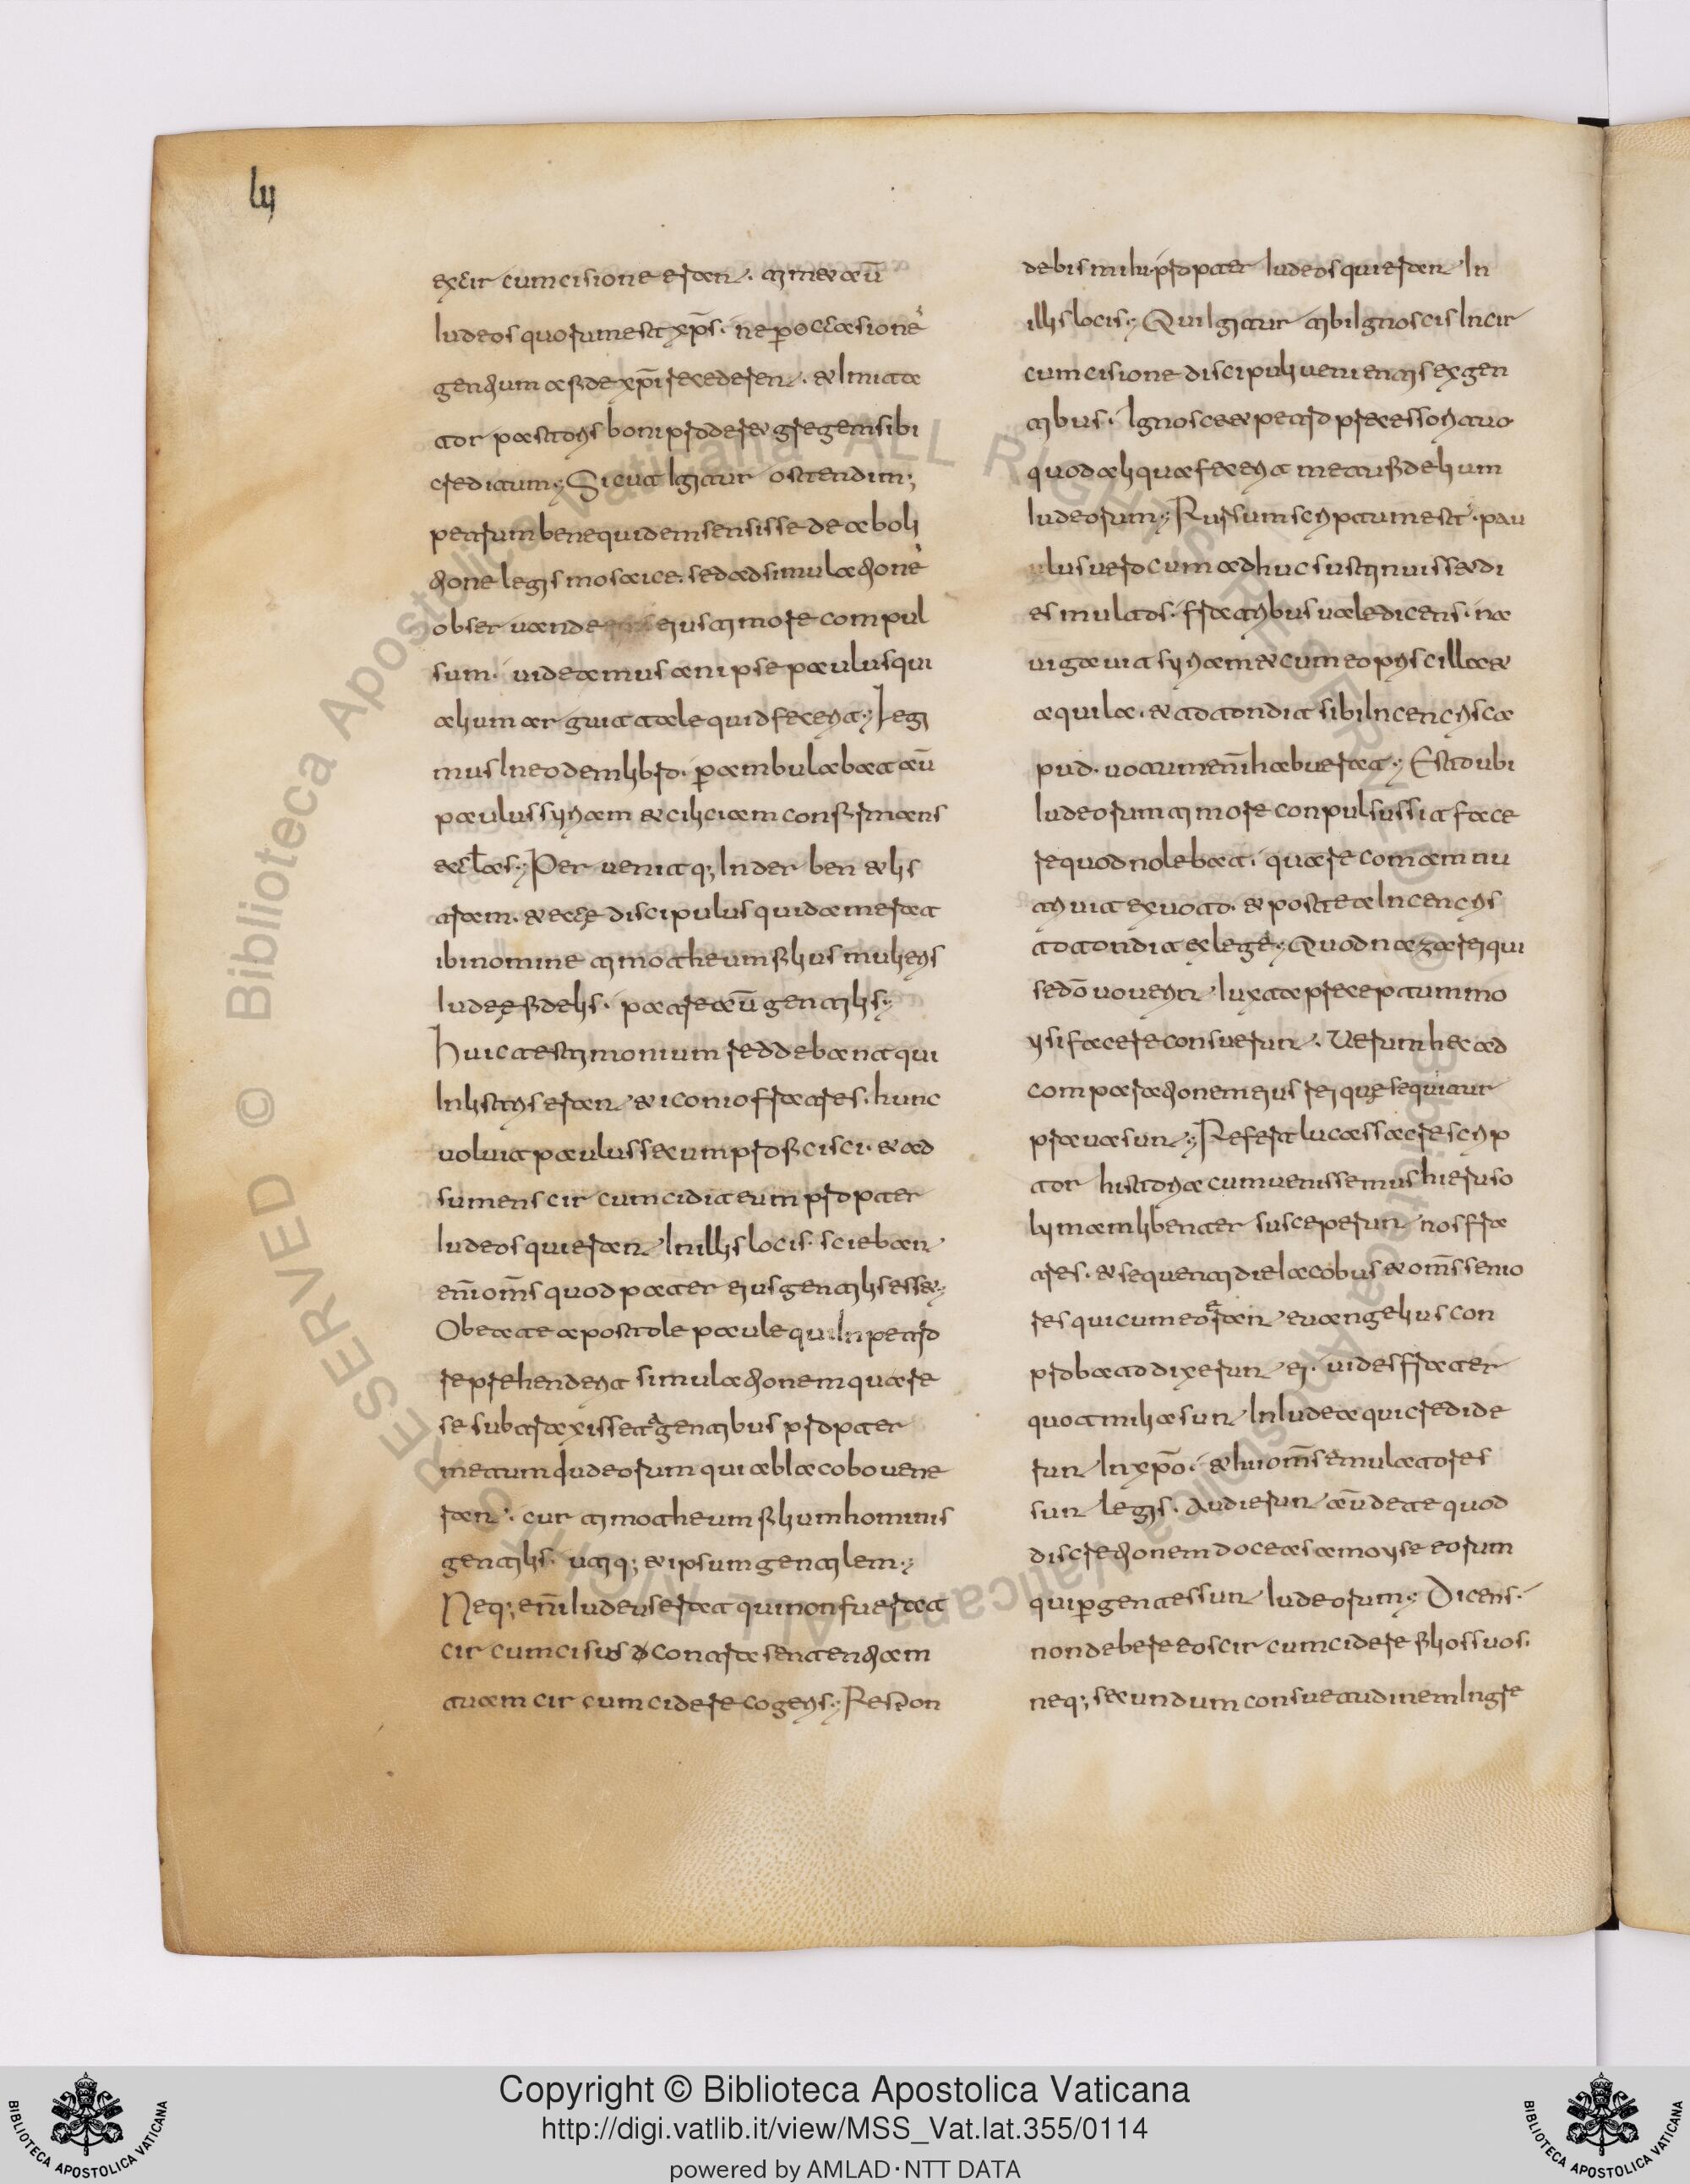 lij
ex cir cumcisione erant. timet aū
Iudeos quorum est xp̄s. ne p̱ occasionē
gentium a fide xp̄i recederent. & Imita
tor pastoris boni proderet gregem sibi
creditum. Sicut Igitur ostendim;
petrum bene quidem sensisse de aboli
tione legis mosaice. sed ad simulationē
obser uande eius timore compul
sum. uideamus an ipse paulus qui
alium arguit tale quid fecerit. Legi
mus In eodem libro. p̱ambulabat aū
paulus syriam & ciliciam confirmans
eccl̄as. Per uenitq; In der ben & lis
tram. & ecce discipulus quidam erat
ibi nomine timotheum filius mulieris
Iudeę fidelis. patre aū gentilis.
Huic testimonium reddebant qui
In listris erant & iconio fratres. hunc
uoluit paulus secum proficisci. & ad
sumens cir cumcidit eum propter
Iudeos qui erant In illis locis. sciebant
enī om̄s quod pater eius gentilis esset.
O beate apostole paule qui In petro
reprehenderit simulationem quare
se subtraxisset a gentibus propter
metum Iudeorum qui ab Iacobo uene
rant. cur timotheum filium hominis
gentilis. utiq; & ipsum gentilem.
Neq; enī Iudeus erat qui non fuerat
cir cumcisus contra sententiam
tuam cir cumcidere cogeris. Respon
debis mihi. propter Iudeos qui erant In
illis locis. Qui Igitur tibi Ignoscis In cir
cumcisione discipuli uenientis ex gen
tibus. Ignosce & petro precessori tuo
quod aliqua fecerit metu fidelium
Iudeorum. Rursum scriptum est. pau
lus uero cum adhuc sustinuisset di
es multos. fratribus ualedicens. na
uigauit syriam & cum eo priscilla &
aquila. & totondit sibi In cencris ca
pud. uotum enī habuerat. Esto ubi
Iudeorum timore conpulsus sit face
re quod nolebat. quare comam nu
triuit ex uoto. & postea In cencris
totondit ex lege. Quod nazarei qui
se dō uouerint Iuxta preceptum mo
ysi facere consuerunt. Uerum hec ad
comparationem eius rei quę sequitur
praua sunt. Refert lucas sacre scrip
tor historia cum uenissemus hieruso
lymam libenter susceperunt nos fra
tres. & sequenti die Iacobus & om̄s senio
res qui cum eo erant euangelius con
probato dixerunt ei. uides frater
quot milia sunt In Iudea qui credide
runt In xp̄o. & hi om̄s emulatores
sunt legis. Audierunt aū de te quod
discretionem doceas a moyse eorum
qui p̱ gentes sunt Iudeorum. Dicens.
non debere eos cir cumcidere filios suos.
neq; secundum consuetudinem Ingre
Copyright © Biblioteca Apostolica Vaticana
http://digi.vatlib.it/view/MSS_Vat.lat.355/0114
powered by AMLAD·NTT DATA
BIBLIOTECA APOSTOLICA VATICANA
BIBLIOTECA APOSTOLICA VATICANA
© Biblioteca Apostolica Vaticana ALL RIGHTS RESERVED
© Biblioteca Apostolica Vaticana ALL RIGHTS RESERVED